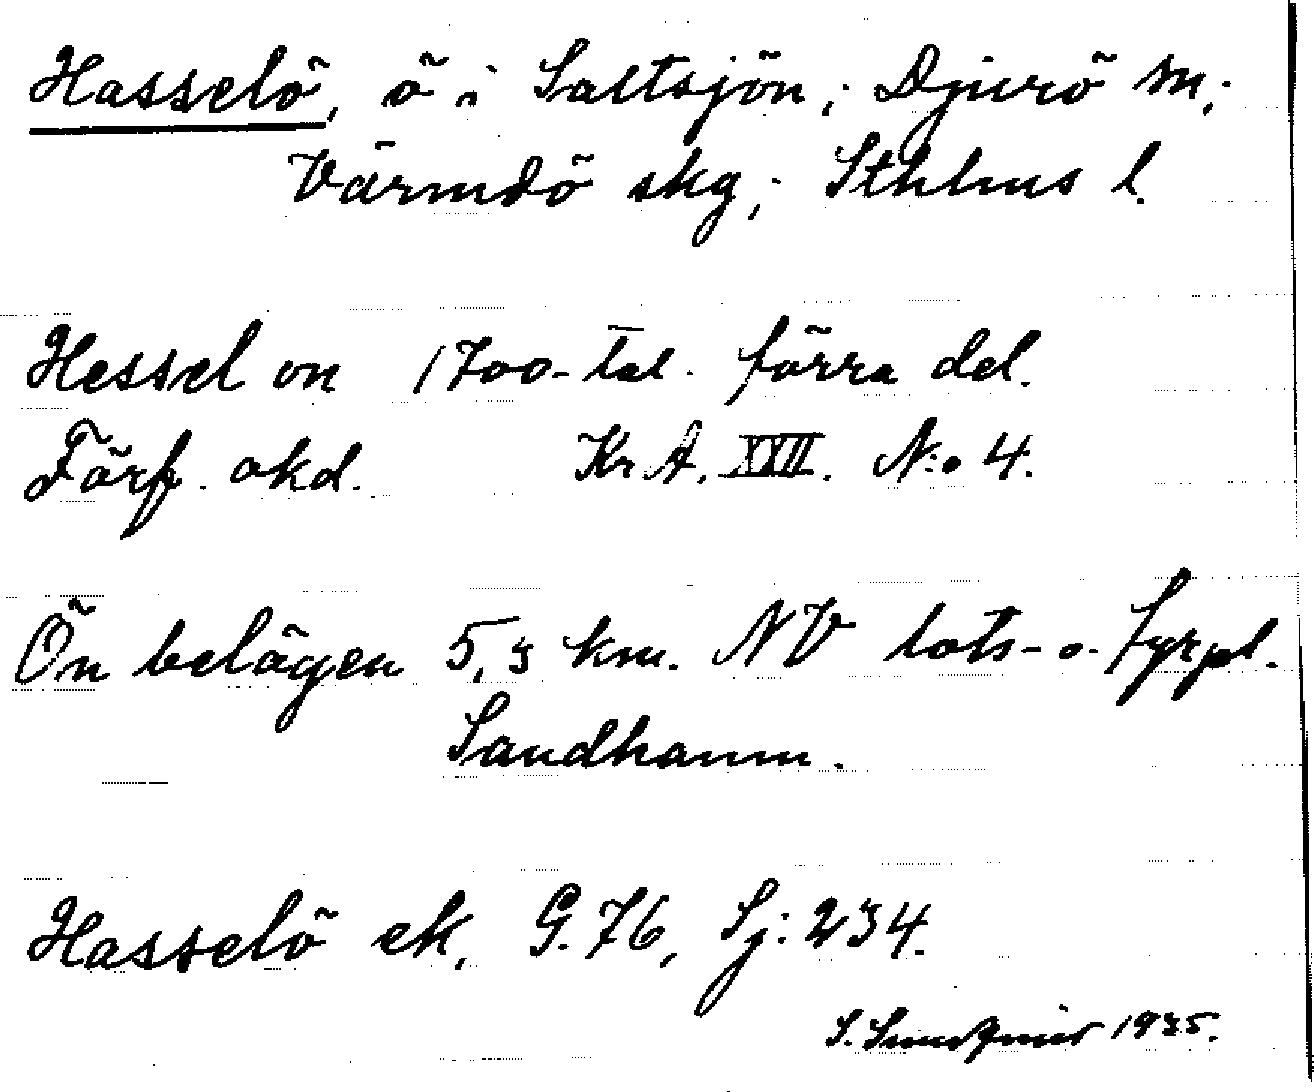 Hasselö, ö i Saltsjön; Djurö sn;
Värmdö skg; Sthlms l.
Hessel ön 1700-tal. förra del.
Förf. okd. Kr A. XVII. N:o 4.
Ön belägen 5,3 km. NV lots- o. fyrpl.
Sandhamn.
Hasselö ek. G. 76, Sj: 234.
S. 1935.